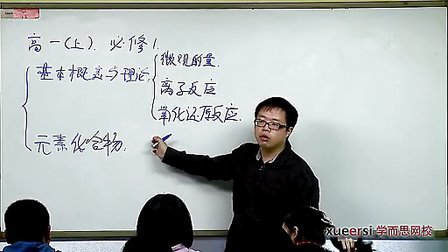 高一(上). 必修1.
基本概念与理论
微观的量.
离子反应
氧化还原反应.
元素化合物.
xueersi 学而思网校